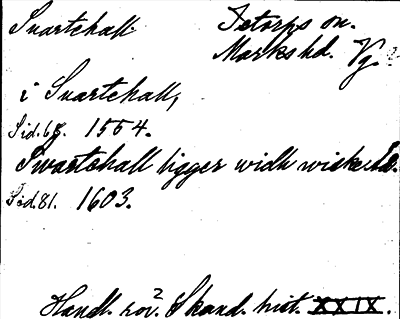 Svartehall Istorps sn.
Marks hd. Vg.
i Svartehall,
Sid. 68. 1554.
Swartehall ligger widh wiske
Sid. 81. 1603.
Handl. rör. Skand. hist. XXIX.